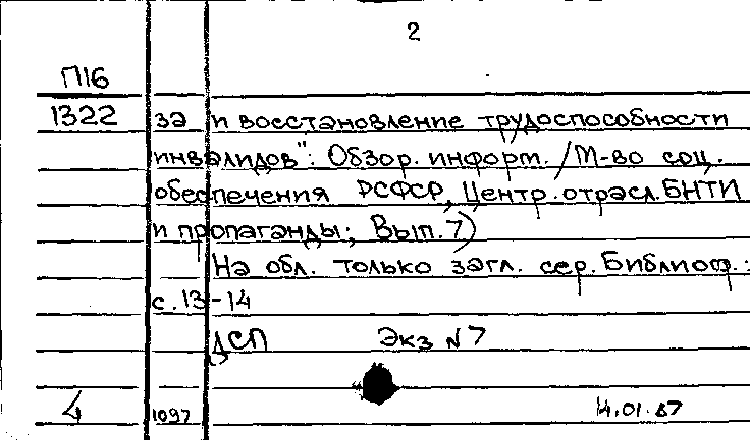 2
П16
1322 за и восстановление трудоспособности
инвалидов": Обзор. информ. / М-во соц.
обеспечения РСФСР, Центр. отрасл. БНТИ
и пропаганды; Вып. 7)
На обл. только загл. сер. Библиогр.:
с. 13-14
ДСП Экз N 7
4 1097 14.01.87